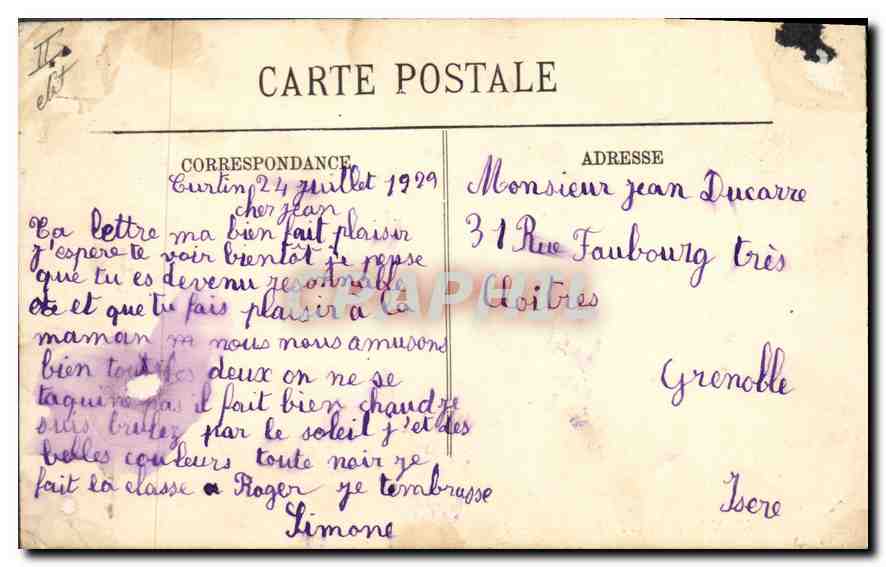 II
CARTE POSTALE
CORRESPONDANCE
Curtin 24 juillet 1929
cher jean
Ta lettre ma bien fait plaisir
j'espere te voir bientôt je pense
que tu es devenu resonnable
et que tu fais plaisir a ta
maman nous nous amusons
bien tout les deux on ne se
taquine pas il fait bien chaud je
suis brulez par le soleil j'et des
belles couleurs toute noir je
fait la classe a Roger je t'embrasse
Simone
ADRESSE
Monsieur jean Ducarre
31 Rue Faubourg très
Cloitres
Grenoble
Isere
CPAPHIL